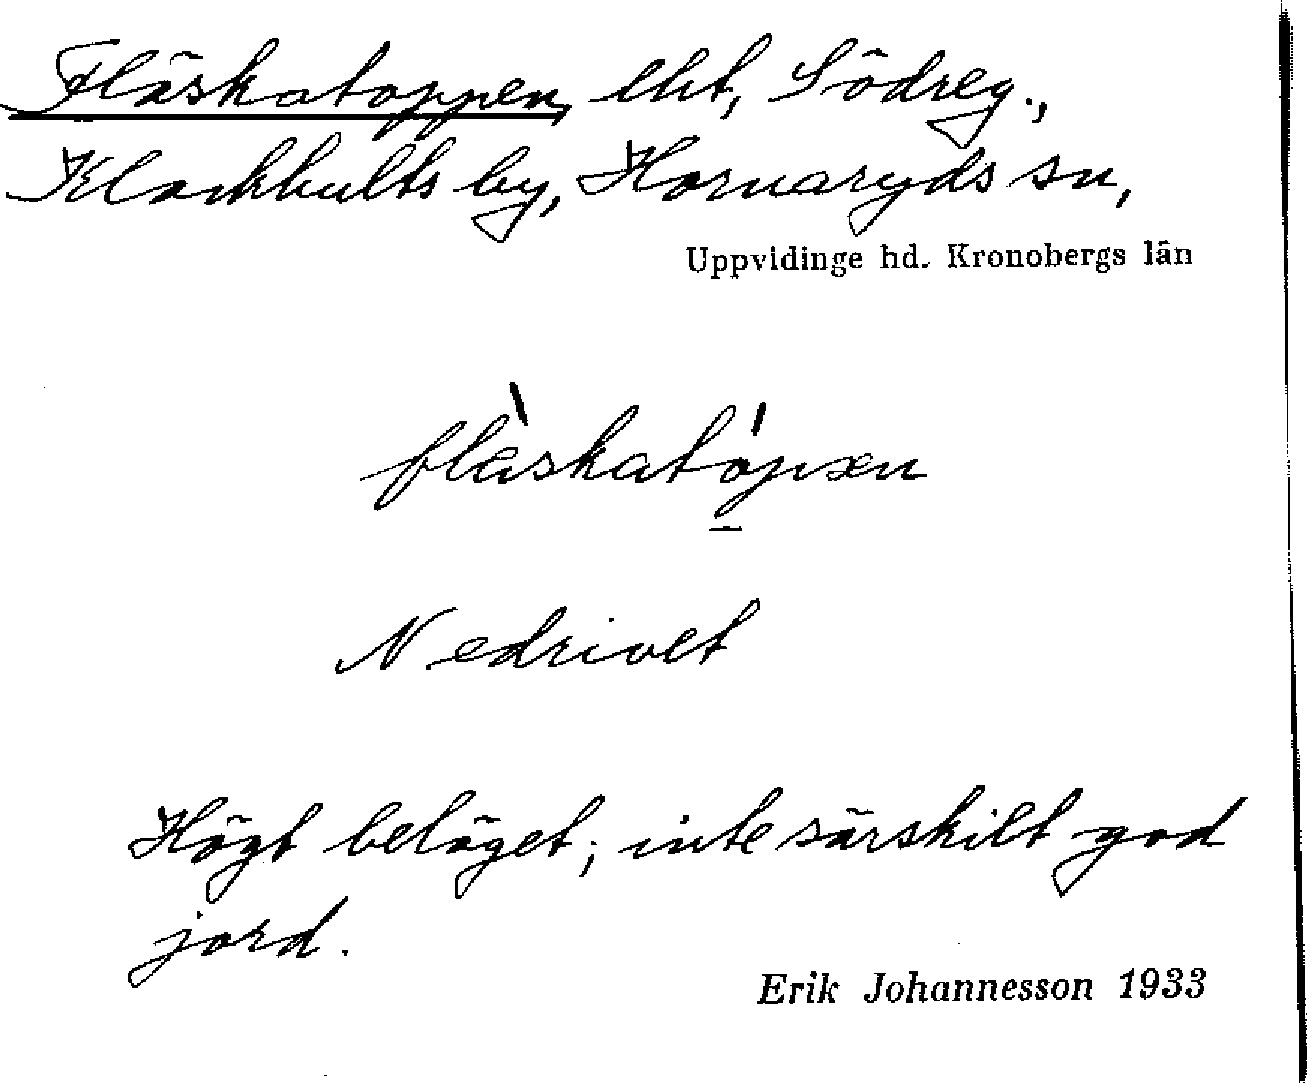 Fläskatoppen, lht, Södreg.,
Klockhults by, Hornaryds sn,
Uppvidinge hd. Kronobergs län
Nedrivet
Högt beläget; inte särskilt god
jord.
Erik Johannesson 1933